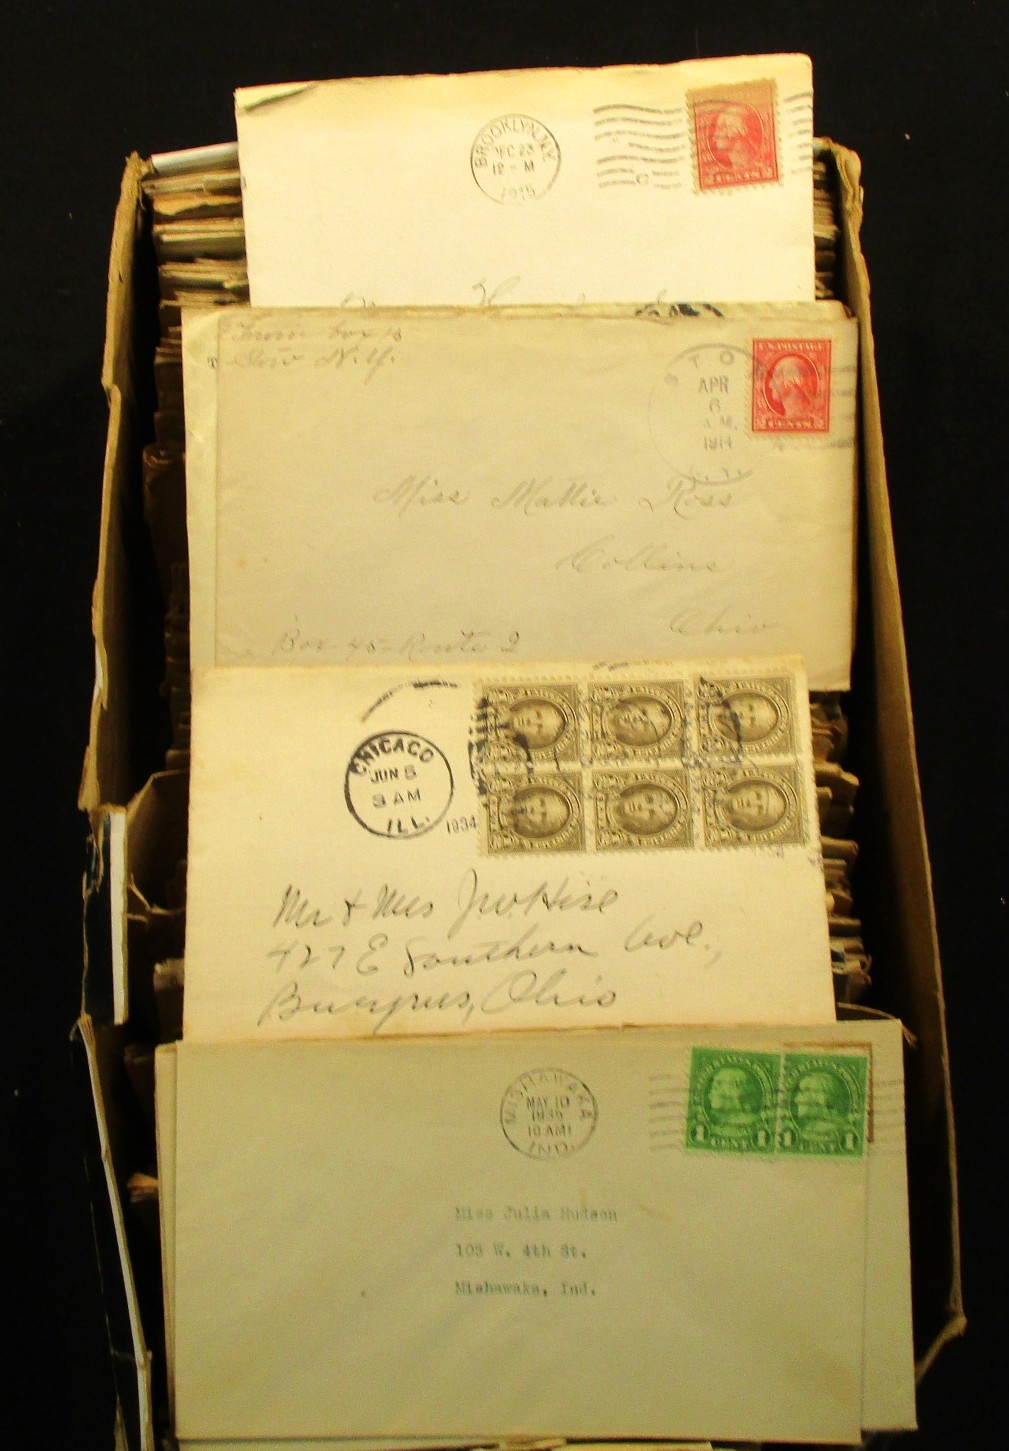 BROOKLYN, N.Y.
12 - M
2 CENTS 2
N.Y.
U.S. POSTAGE
2 CENTS 2
APR
6
1911
Miss Mattie Ross
Collins
Ohio
Box 45 - Route 2
CHICAGO
JUN 5
3 AM
ILL.
1934
Mr & Mrs J.W. Hise
427 E Southern Ave.,
Bucyrus, Ohio
MISHAWAKA
MAY 10
10 AM
IND.
1 CENT 1
1 CENT 1
Miss Julia Hudson
105 W. 4th St.
Mishawaka, Ind.